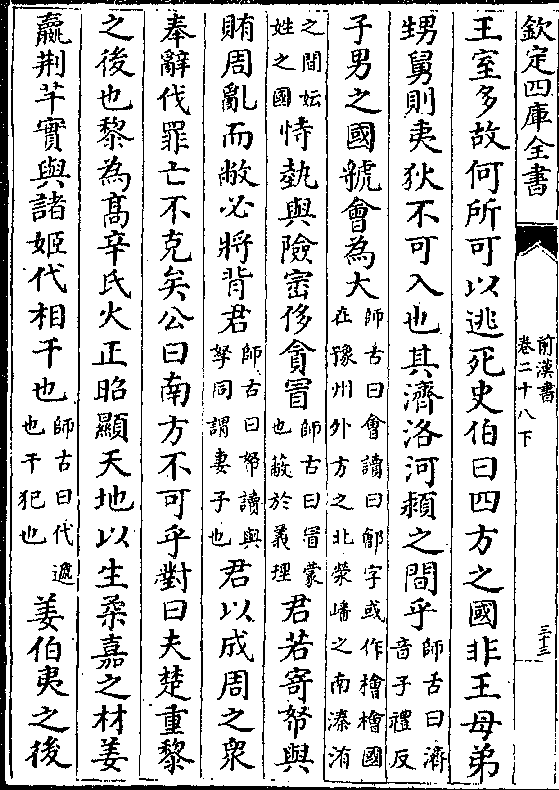 欽定四庫全書
前漢書
卷二十八下
三十三
王室多故何所可以逃死史伯曰四方之國非王母弟
甥舅則夷狄不可入也其濟洛河潁之間乎師古曰濟音子禮反
子男之國虢會為大師古曰會讀曰鄶字或作檜檜國在豫州外方之北滎嶓之南溱洧
之間妘姓之國恃埶與險崈侈貪冒師古曰冒蒙也蔽於義理君若寄帑與
賄周亂而敝必將背君師古曰帑讀與孥同謂妻子也君以成周之衆
奉辭伐罪亡不克矣公曰南方不可乎對曰夫楚重黎
之後也黎為高辛氏火正昭顯天地以生柔嘉之材姜
嬴荆芊實與諸姬代相干也師古曰代遞也干犯也姜伯夷之後